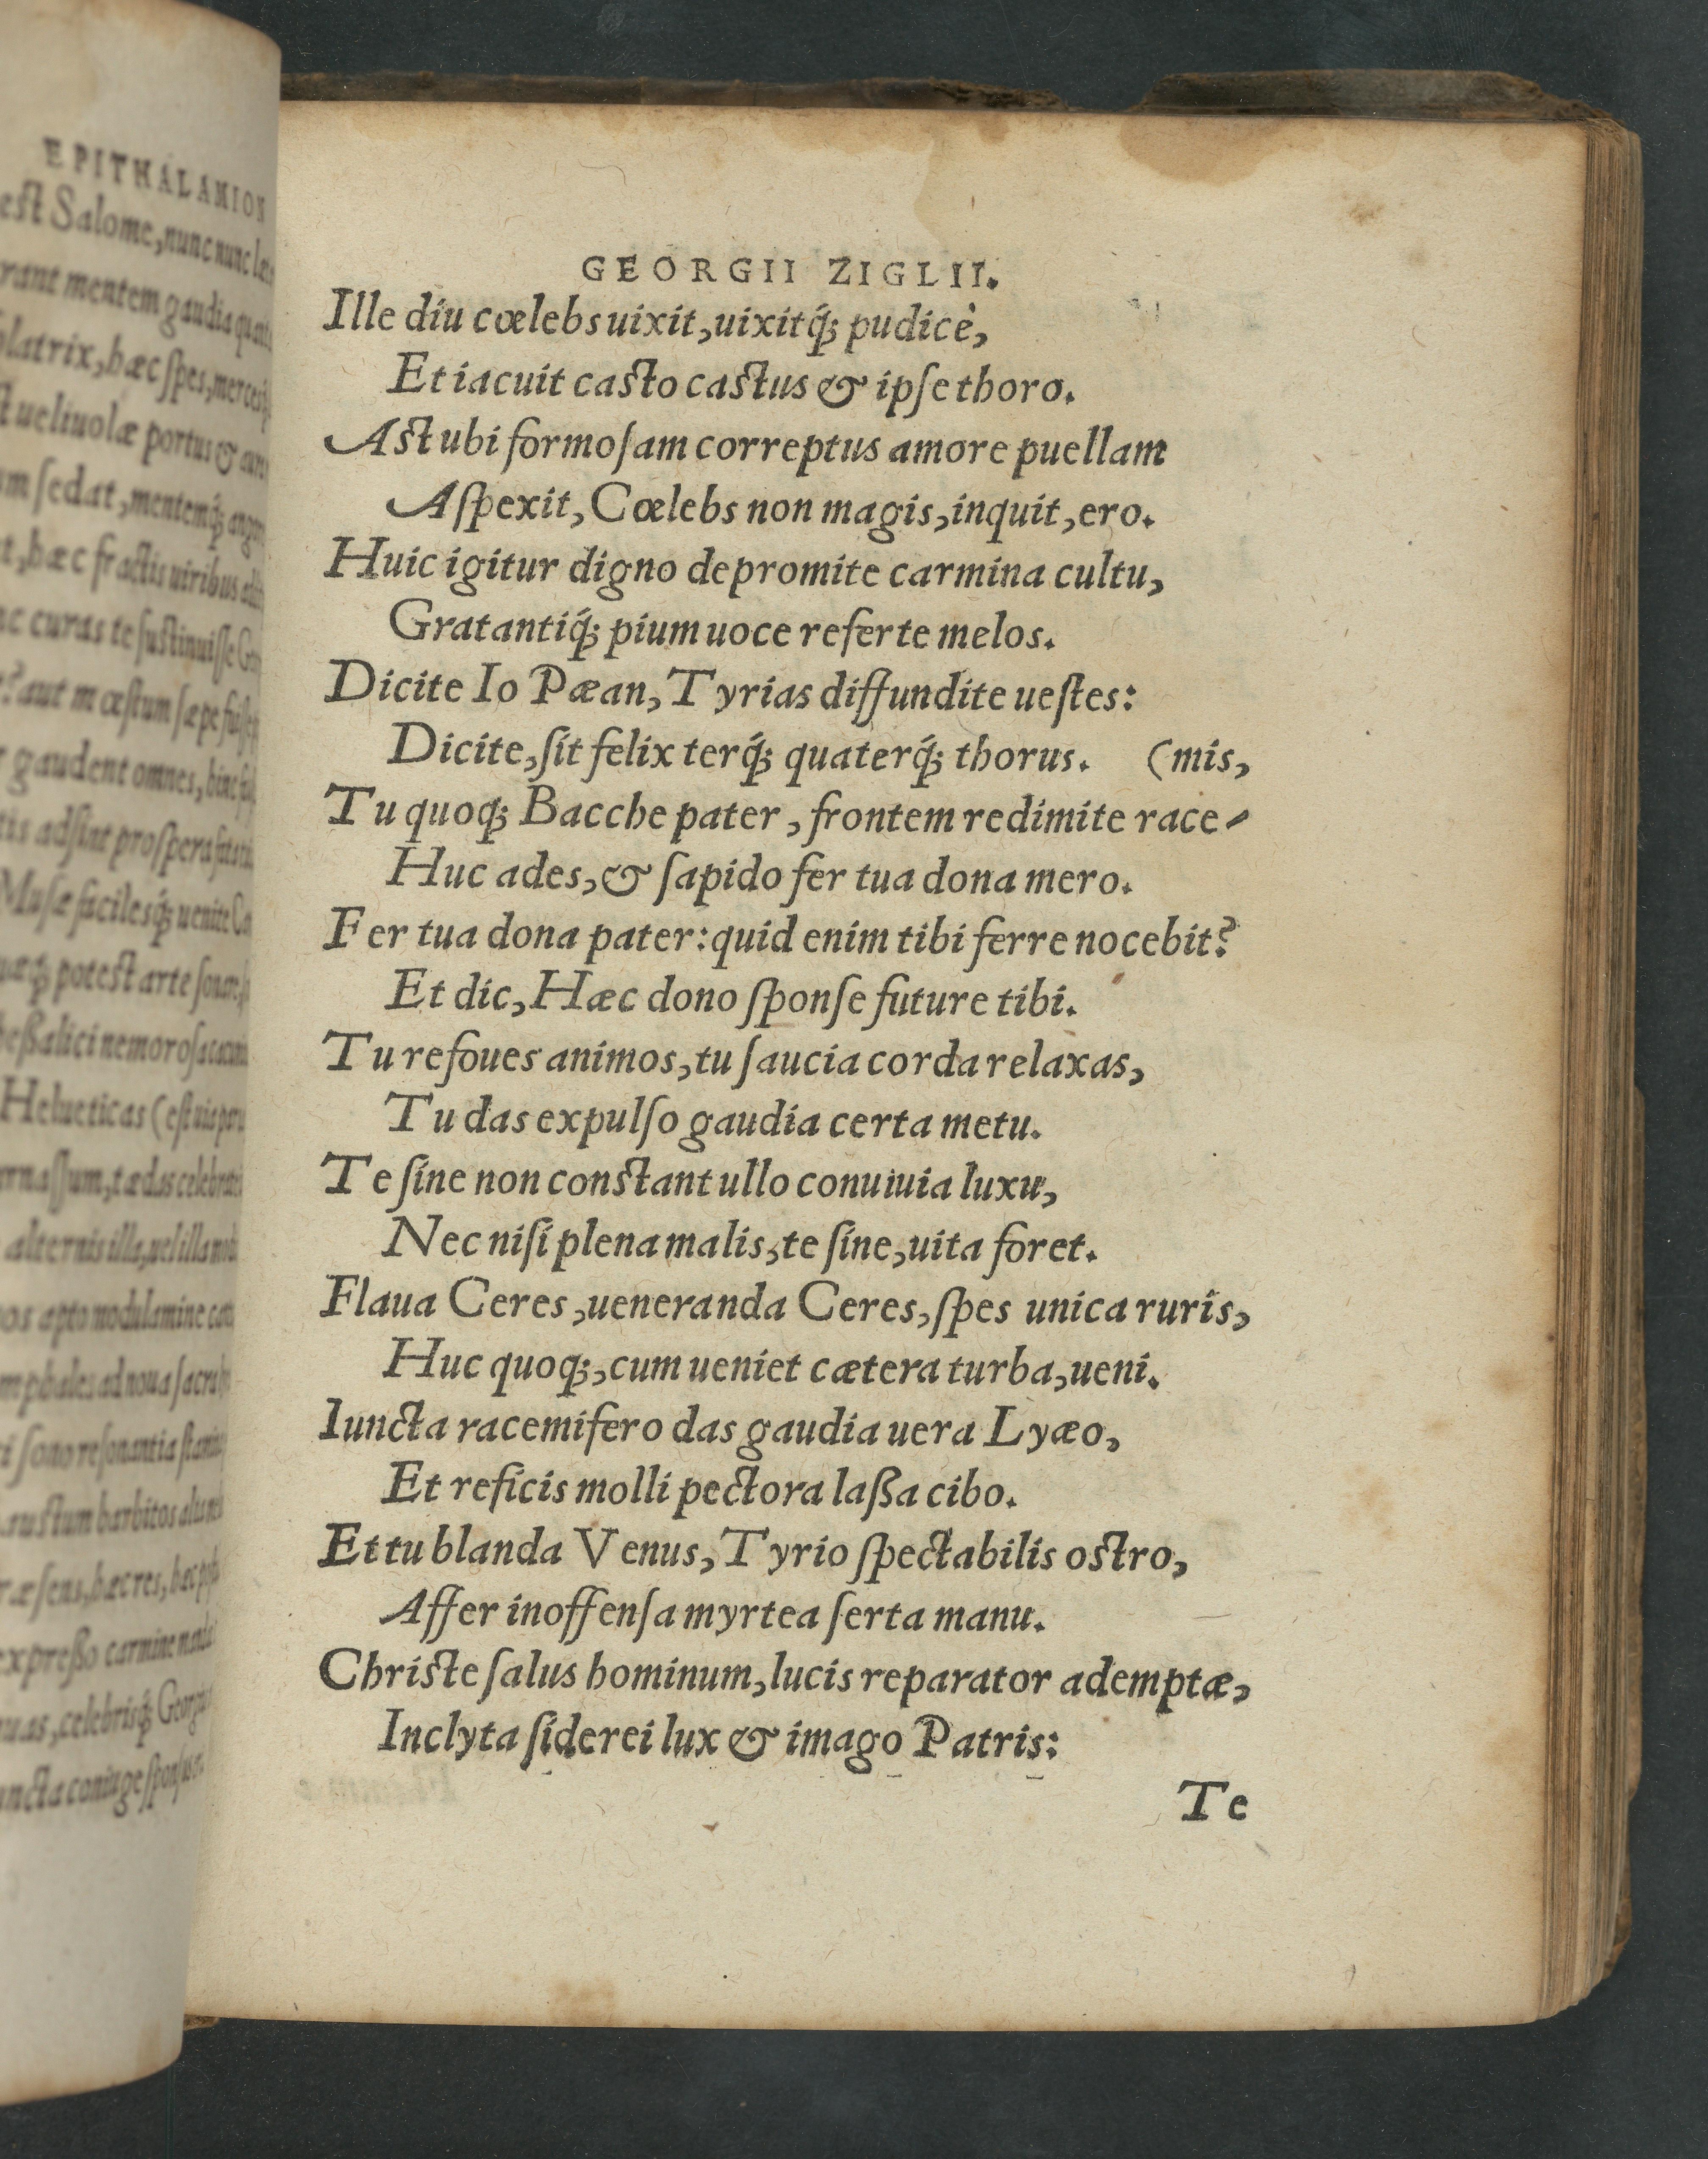 EPITHALAMION
est Salome, nunc nunc
mentem gaudia
hæc spes,
ueliuolæ portus &
sedat, mentemq́;
hæc fractis uiribus
curas te sustinuisse
aut mœstum sæpe
gaudent omnes, hinc
adsint prospera
Musæ facilesq́; uenite
potest arte
nemorosa
Helueticas (est
tædas
alternis illa, uel illa
apto modulamine
ad noua sacra
sono resonantia
barbitos
hæc res, hæc
expreßo carmine
celebrisq́; Georgius
coniuge sponsus
GEORGII ZIGLII.
Ille diu cœlebs uixit, uixitq́; pudicè,
Et iacuit casto castus & ipse thoro.
Ast ubi formosam correptus amore puellam
Aspexit, Cœlebs non magis, inquit, ero.
Huic igitur digno depromite carmina cultu,
Gratantiq́; pium uoce referte melos.
Dicite Io Pæan, Tyrias diffundite uestes:
Dicite, sit felix terq́; quaterq́; thorus. (mis,
Tu quoq; Bacche pater, frontem redimite race-
Huc ades, & sapido fer tua dona mero.
Fer tua dona pater: quid enim tibi ferre nocebit?
Et dic, Hæc dono sponse future tibi.
Tu refoues animos, tu saucia corda relaxas,
Tu das expulso gaudia certa metu.
Te sine non constant ullo conuiuia luxu,
Nec nisi plena malis, te sine, uita foret.
Flaua Ceres, ueneranda Ceres, spes unica ruris,
Huc quoq;, cum ueniet cætera turba, ueni.
Iuncta racemifero das gaudia uera Lyæo,
Et reficis molli pectora laßa cibo.
Et tu blanda Venus, Tyrio spectabilis ostro,
Affer inoffensa myrtea serta manu.
Christe salus hominum, lucis reparator ademptæ,
Inclyta siderei lux & imago Patris:
Te